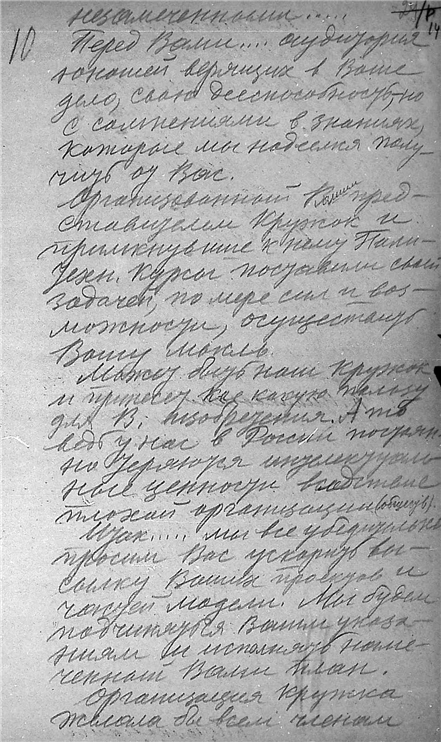 незамеченными.....
10
14
Перед Вами.... аудитория
юношей верящих в Ваше
дело, свою дееспособность, но
с сомнениями в знаниях,
которые мы надеемся полу-
чить от Вас.
Организованный Вашим пред-
ставителем Кружок и
примкнувшие к нему Поли-
техн. Курсы поставили своей
задачей, по мере сил и воз-
можности, осуществить
Вашу мысль.
Может быть наш Кружок
и принесет кое какую пользу
для В. изобретения. А то
ведь у нас в России постоян-
но теряются интелектуаль-
ные ценности вследствие
плохой организации (обществ).
Итак..... мы все убедительно
просим Вас ускорить вы-
сылку Ваших проектов и
чертежей модели. Мы будем
подчиняться Вашим указа-
ниям и исполнять наме-
ченный Вами план.
Организация Кружка
желала бы всем членам